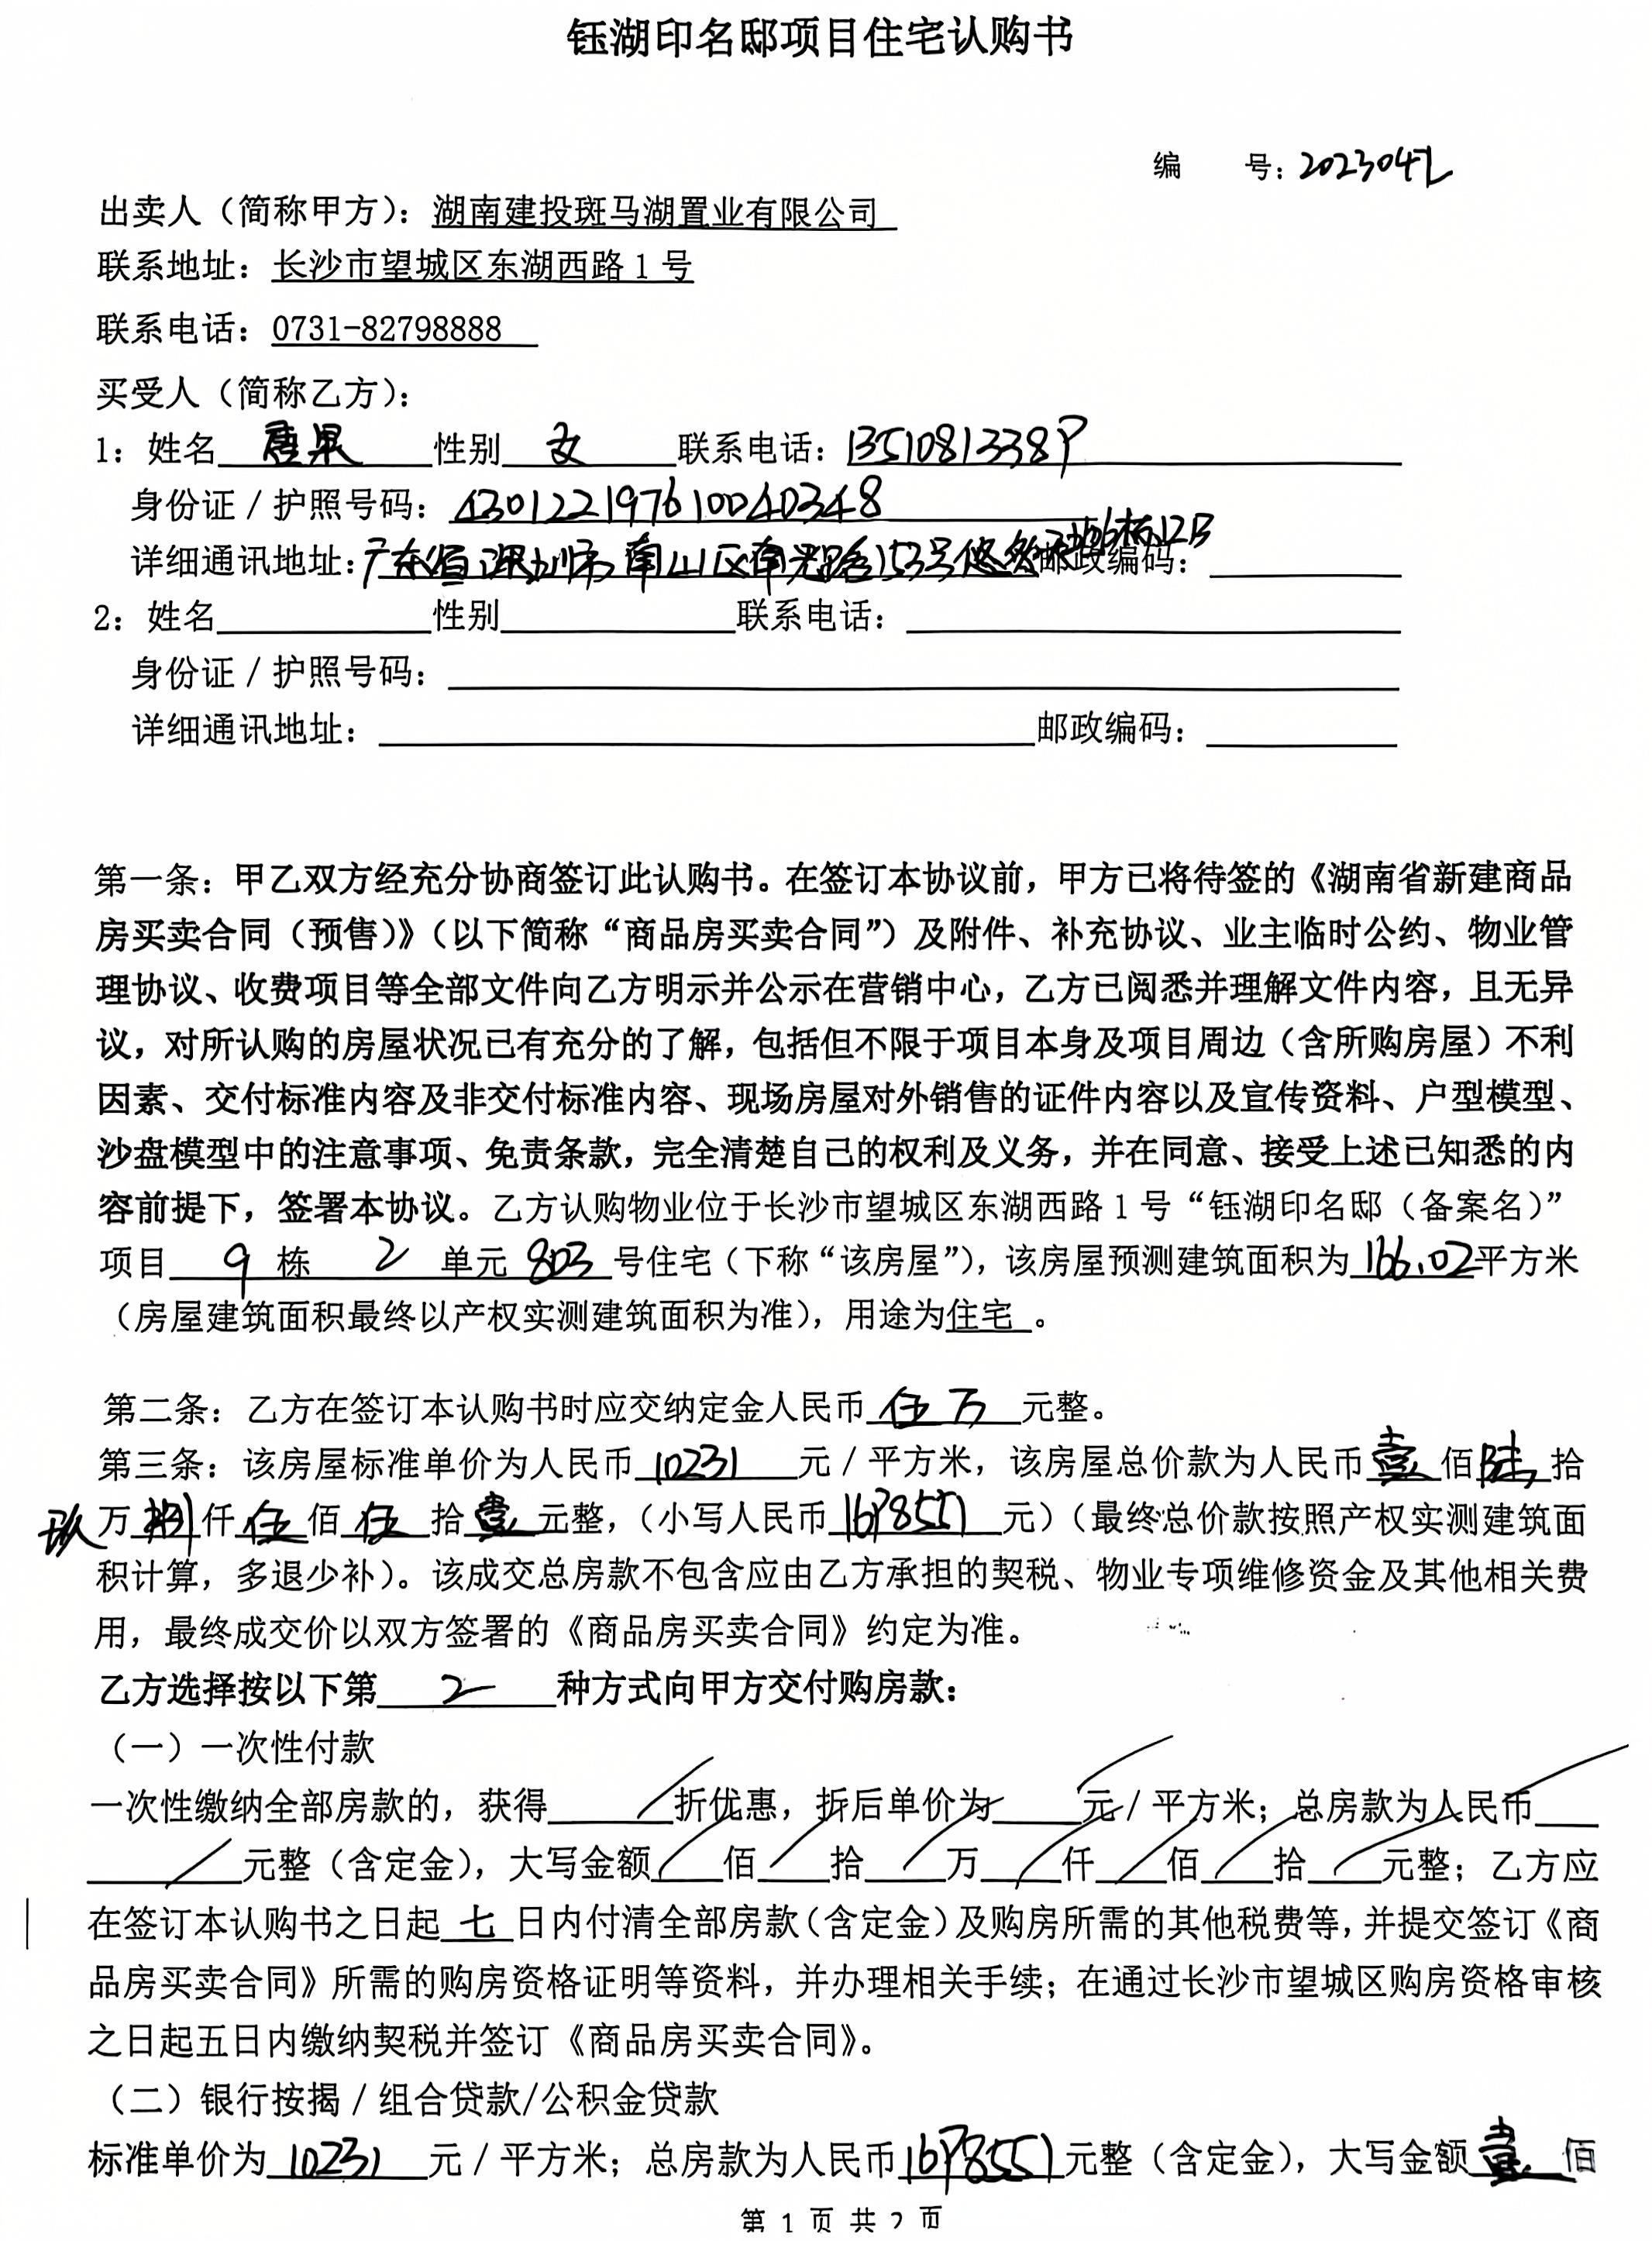 钰湖印名邸项目住宅认购书
编 号：2023042
出卖人（简称甲方）：湖南建投斑马湖置业有限公司
联系地址：长沙市望城区东湖西路1号
联系电话：0731-82798888
买受人（简称乙方）：
1：姓名 唐果 性别 女 联系电话：13510813389
身份证/护照号码：430122197610040348
详细通讯地址：广东省深圳市南山区南光路153号悠然天地6栋12B 邮政编码：
2：姓名 性别 联系电话：
身份证/护照号码：
详细通讯地址： 邮政编码：
第一条：甲乙双方经充分协商签订此认购书。在签订本协议前，甲方已将待签的《湖南省新建商品
房买卖合同（预售）》（以下简称“商品房买卖合同”）及附件、补充协议、业主临时公约、物业管
理协议、收费项目等全部文件向乙方明示并公示在营销中心，乙方已阅悉并理解文件内容，且无异
议，对所认购的房屋状况已有充分的了解，包括但不限于项目本身及项目周边（含所购房屋）不利
因素、交付标准内容及非交付标准内容、现场房屋对外销售的证件内容以及宣传资料、户型模型、
沙盘模型中的注意事项、免责条款，完全清楚自己的权利及义务，并在同意、接受上述已知悉的内
容前提下，签署本协议。乙方认购物业位于长沙市望城区东湖西路1号“钰湖印名邸（备案名）”
项目 9 栋 2 单元 803 号住宅（下称“该房屋”），该房屋预测建筑面积为 166.02 平方米
（房屋建筑面积最终以产权实测建筑面积为准），用途为住宅 。
第二条：乙方在签订本认购书时应交纳定金人民币 伍万 元整。
第三条：该房屋标准单价为人民币 10231 元/平方米，该房屋总价款为人民币 壹 佰 陆 拾
玖 万 捌 仟 伍 佰 伍 拾 壹 元整，（小写人民币 1698551 元）（最终总价款按照产权实测建筑面
积计算，多退少补）。该成交总房款不包含应由乙方承担的契税、物业专项维修资金及其他相关费
用，最终成交价以双方签署的《商品房买卖合同》约定为准。
乙方选择按以下第 2 种方式向甲方交付购房款：
（一）一次性付款
一次性缴纳全部房款的，获得 / 折优惠，折后单价为 / 元/平方米；总房款为人民币 /
/ 元整（含定金），大写金额 / 佰 / 拾 / 万 / 仟 / 佰 / 拾 / 元整；乙方应
在签订本认购书之日起 七 日内付清全部房款（含定金）及购房所需的其他税费等，并提交签订《商
品房买卖合同》所需的购房资格证明等资料，并办理相关手续；在通过长沙市望城区购房资格审核
之日起五日内缴纳契税并签订《商品房买卖合同》。
（二）银行按揭/组合贷款/公积金贷款
标准单价为 10231 元/平方米；总房款为人民币 1698551 元整（含定金），大写金额 壹 佰
第 1 页 共 2 页